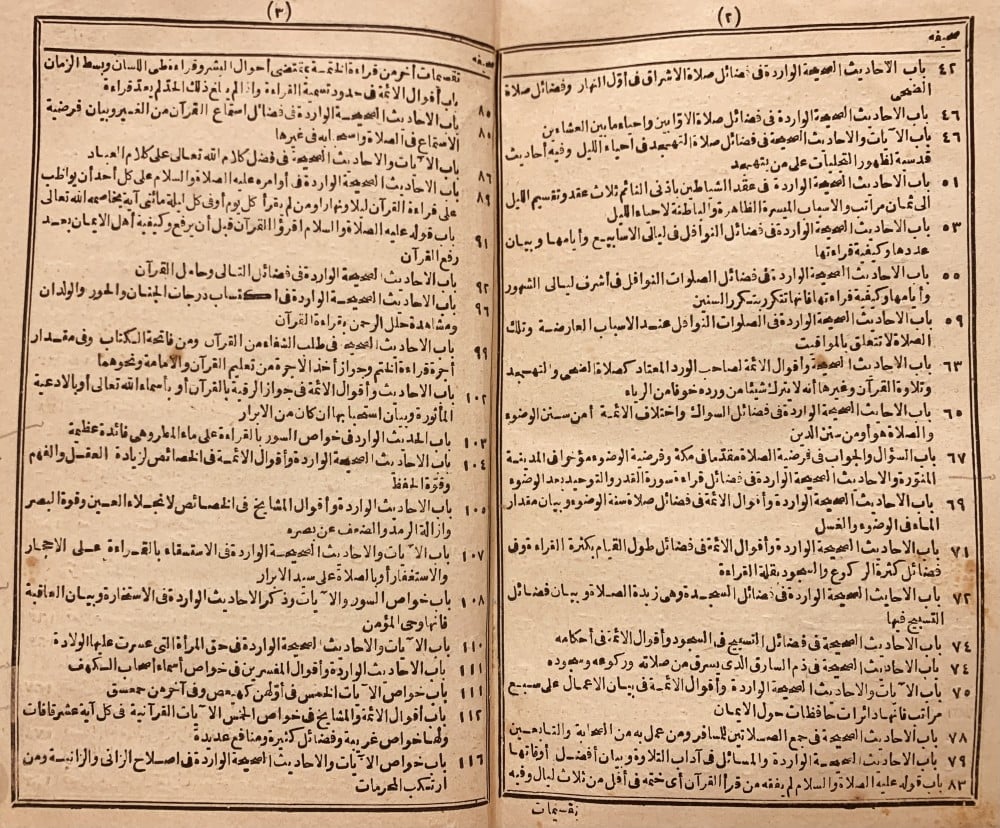 (٢)
صحيفه
٤٢ باب الاحاديث الصحيحة الواردة فى فضائل صلاة الاشراق فى أول النهار وفضائل صلاة
الضحى
٤٦ باب الاحاديث الصحيحة الواردة فى فضائل صلاة الاوابين واحياء ما بين العشاءين
٤٦ باب الآيات والاحاديث الصحيحة فى فضائل صلاة التهجد فى احياء الليل وفيه أحاديث
قدسية لظهور التجليات على من يتهجد
٥١ باب الاحاديث الصحيحة الواردة فى عقد الشياطين باذنى النائم ثلاث عقد وتقسيم الليل
الى ثمان مراتب والاسباب الميسرة الظاهرة والباطنة لاحياء الليل
٥٣ باب الاحاديث الصحيحة الواردة فى فضائل النوافل فى ليالى الاسابيع وأيامها وبيان
عددها وكيفية قراءتها
٥٥ باب الاحاديث الصحيحة الواردة فى فضائل الصلوات النوافل فى أشرف ليالى الشهور
وأيامها وكيفية قراءتها فانها تتكرر بتكرر السنين
٥٩ باب الاحاديث الصحيحة الواردة فى الصلوات النوافل عند الاسباب العارضة وتلك
الصلاة لا تتعلق بالمواقيت
٦٣ باب الاحاديث الصحيحة الواردة وأقوال الائمة لصاحب الورد المعتاد كصلاة الضحى والتهجد
وتلاوة القرآن وغيرها أنه لا يترك شيئا من ورده خوفا من الرياء
٦٥ باب الاحاديث الصحيحة الواردة فى فضائل السواك واختلاف الائمة أمن سنن الوضوء
والصلاة هو أو من سنن الدين
٦٧ باب السؤال والجواب فى فرضية الصلاة مقدما فى مكة وفرضية الوضوء مؤخرا فى المدينة
المنورة والاحاديث الصحيحة الواردة فى فضائل قراءة سورة القدر والتوحيد بعد الوضوء
٦٩ باب الاحاديث الصحيحة الواردة وأقوال الائمة فى فضائل صلاة سنة الوضوء وبيان مقدار
الماء فى الوضوء والغسل
٧١ باب الاحاديث الصحيحة الواردة وأقوال الائمة فى فضائل طول القيام بكثرة القراءة وفى
فضائل كثرة الركوع والسجود بقلة القراءة
٧٢ باب الاحاديث الصحيحة الواردة فى فضائل السجدة وهى زبدة الصلاة وبيان فضائل
التسبيح فيها
٧٤ باب الاحاديث الصحيحة فى فضائل التسبيح فى السجود وأقوال الائمة فى أحكامه
٧٤ باب الاحاديث الصحيحة فى ذم السارق الذى يسرق من صلاته وركوعه وسجوده
٧٥ باب الآيات والاحاديث الصحيحة الواردة وأقوال الائمة فى بيان الاعمال على سبع
مراتب فانها دائرات حافظات حول الايمان
٧٨ باب الاحاديث الصحيحة فى جمع الصلاتين للمسافر ومن عمل به من الصحابة والتابعين
٧٩ باب الاحاديث الصحيحة الواردة والمسائل فى آداب التلاوة وبيان أفضل أوقاتها
٨٣ باب قوله عليه الصلاة والسلام لم يفقه من قرأ القرآن أى ختمه فى أقل من ثلاث ليال وفيه
تقسيمات
(٣)
صحيفه
تقسيمات أخر من قراءة الختمة بمقتضى أحوال البشر وقراءة طى اللسان وبسط الزمان
٨٥ باب أقوال الائمة فى حدود تسمية القراءة واذا لم يبلغ ذلك الحد لم يعد قراءة
٨٥ باب الاحاديث الصحيحة الواردة فى فضائل استماع القرآن من الغير وبيان فرضية
الاستماع فى الصلاة واستحبابه فى غيرها
٨٦ باب الآيات والاحاديث الصحيحة فى فضل كلام الله تعالى على كلام العباد
٨٩ باب الاحاديث الصحيحة الواردة فى أوامره عليه الصلاة والسلام على كل أحد أن يواظب
على قراءة القرآن ليلا ونهارا ومن لم يقرأ كل يوم أو فى كل ليلة مائتى آية يخاصمه الله تعالى
٩١ باب قوله عليه الصلاة والسلام اقرؤا القرآن قبل أن يرفع وكيفية أهل الايمان بعد
رفع القرآن
٩٢ باب الاحاديث الصحيحة الواردة فى فضائل التالى وحامل القرآن
٩٦ باب الاحاديث الصحيحة الواردة فى اكتساب درجات الجنان والحور والولدان
ومشاهدة حلل الرحمن بقراءة القرآن
٩٩ باب الاحاديث الصحيحة فى طلب الشفاء من القرآن ومن فاتحة الكتاب وفى مقدار
أجرة قراءة الختم وجواز أخذ الاجرة من تعليم القرآن والامامة ونحوهما
١٠٢ باب الاحاديث وأقوال الائمة فى جواز الرقية بالقرآن أو بأسماء الله تعالى أو بالادعية
المأثورة وبيان استحبابها ان كان من الابرار
١٠٣ باب الحديث الوارد فى خواص السور بالقراءة على ماء المطر وهى فائدة عظيمة
١٠٤ باب الاحاديث الصحيحة الواردة وأقوال الائمة فى الخصائص لزيادة العقل والفهم
وقوة الحفظ
١٠٥ باب الاحاديث الصحيحة الواردة وأقوال المشايخ فى الخصائص لانجلاء العين وقوة البصر
وازالة الرمد والضعف عن بصره
١٠٧ باب الآيات والاحاديث الصحيحة الواردة فى الاستسقاء بالقراءة على الاحجار
والاستغفار أو بالصلاة على سيد الابرار
١٠٨ باب خواص السور والآيات وذكر الاحاديث الواردة فى الاستخارة وبيان العاقبة
فانها وحى المؤمن
١١٠ باب الآيات والاحاديث الصحيحة الواردة فى حق المرأة التى عسرت عليها الولادة
١١١ باب الاحاديث الواردة وأقوال المفسرين فى خواص أسماء أصحاب الكهف
١١١ باب خواص الآيات الخمس فى أولهن كهيعص وفى آخرهن حمعسق
١١٢ باب أقوال الائمة والمشايخ فى خواص الخمس الآيات القرآنية فى كل آية عشر قافات
ولها خواص غريبة وفضائل كثيرة ومنافع عديدة
١١٦ باب خواص الآيات والاحاديث الصحيحة الواردة فى اصلاح الزانى والزانية ومن
ارتكب المحرمات